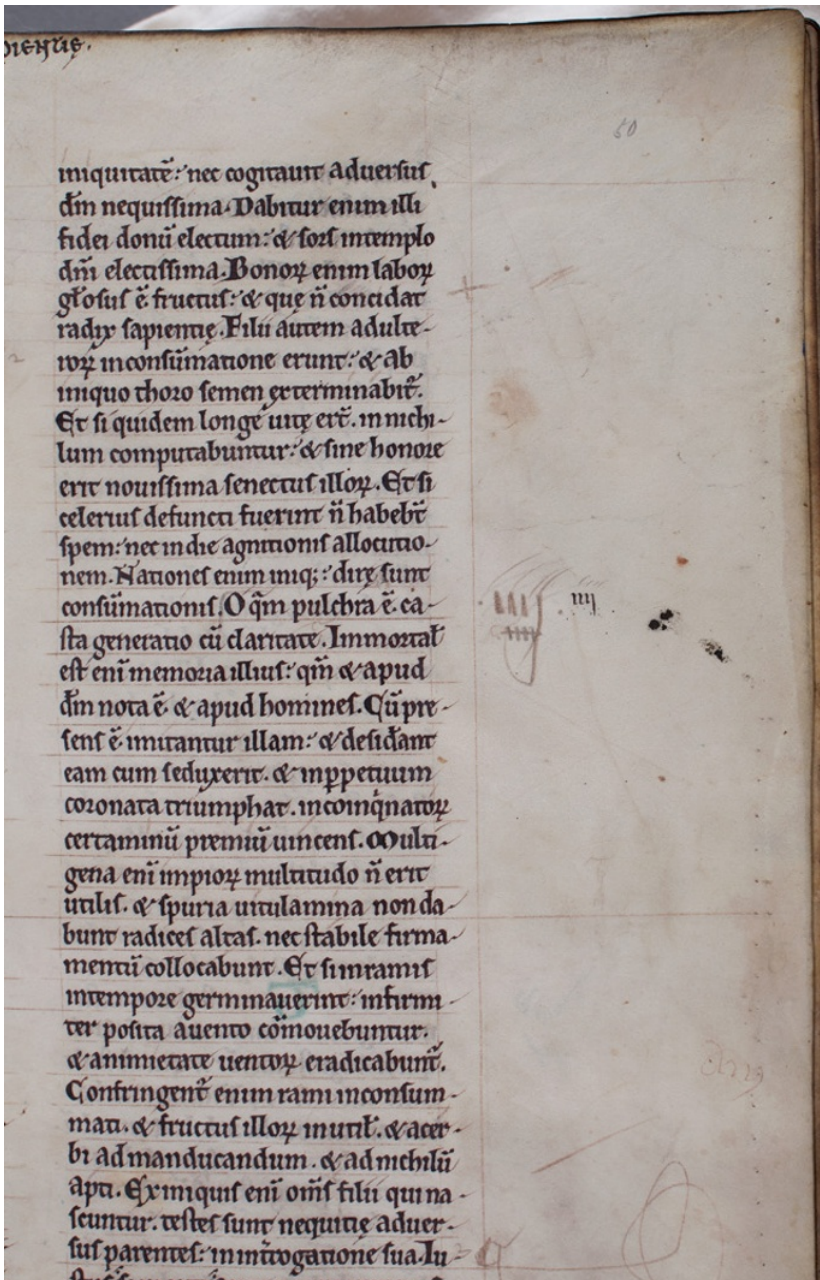 dientię.
60
iniquitatē: nec cogitauit aduersus
dm̄ nequissima. Dabitur enim illi
fidei donū electum: & sors intemplo
dn̄i electissima. Bonoꝝ enim laboꝝ
gl̄osus ē fructus: & quę n̄ concidat
radix sapientię. Filii autem adulte-
roꝝ inconsūmatione erunt: & ab
iniquo thoro semen exterminabit᷑.
Et si quidem longę uitę er̄t. in nichi-
lum computabuntur: & sine honore
erit nouissima senectus illoꝝ. Et si
celerius defuncti fuerint n̄ habeb̄t
spem: nec in die agnitionis allocutio-
nem. Nationes enim iniq;: dirę sunt
consūmationis. O q̄m pulchra ē. ca-
sta generatio cū claritate. Immortal̄
est enī memoria illius: qm̄ & apud
dm̄ nota ē. & apud homines. Cū pre-
sens ē. imitantur illam: & desid̄ant
eam cum seduxerit. & inp̄petuum
coronata triumphat. incoinq̇natoꝝ
certaminū premiū uincens. Multi-
gena enī impioꝝ multitudo n̄ erit
utilis. & spuria uitulamina non da-
bunt radices altas. nec stabile firma-
mentū collocabunt. Et si inramis
intempore germinauerint: infirmi-
ter posita auento cōmouebuntur.
& animietate uentoꝝ eradicabunt᷑.
Confringent᷑ enim rami inconsum-
mati. & fructus illoꝝ inutil̄. & acer-
bi ad manducandum. & ad nichilū
apti. Ex iniquis enī om̄s filii qui na-
scuntur. testes sunt nequitię aduer-
sus parentes: in int̄rogatione sua. Iu-
iiij